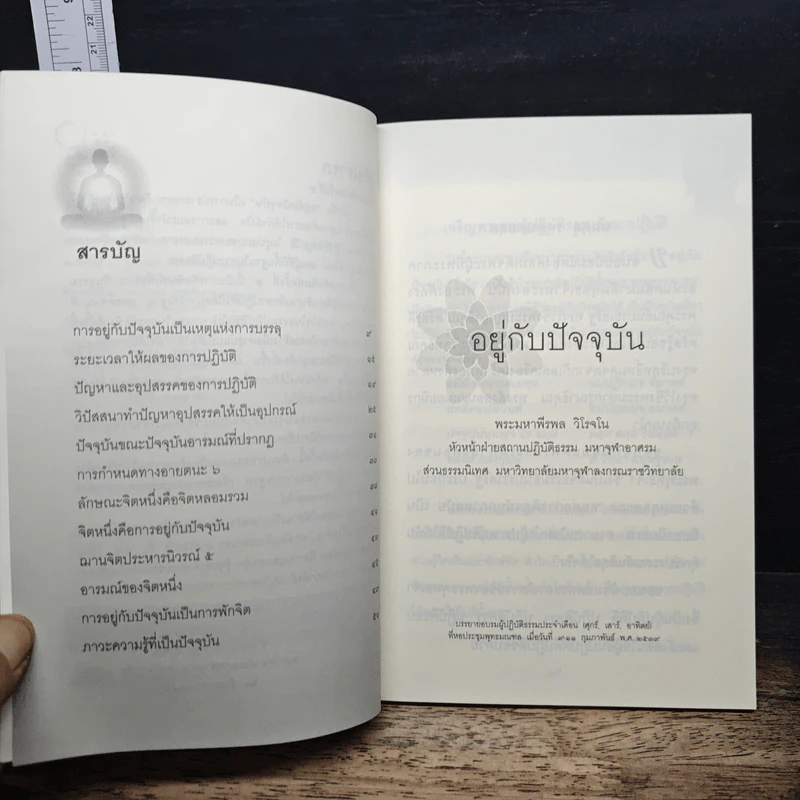 สารบัญ
การอยู่กับปัจจุบันเป็นเหตุแห่งการบรรลุ ๙
ระยะเวลาให้ผลของการปฏิบัติ ๑๕
ปัญหาและอุปสรรคของการปฏิบัติ ๑๙
วิปัสสนาทำปัญหาอุปสรรคให้เป็นอุปกรณ์ ๒๕
ปัจจุบันขณะปัจจุบันอารมณ์ที่ปรากฏ ๓๑
การกำหนดทางอายตนะ ๖
ลักษณะจิตหนึ่งคือจิตหลอมรวม
จิตหนึ่งคือการอยู่กับปัจจุบัน
ฌานจิตประหารนิวรณ์ ๕
อารมณ์ของจิตหนึ่ง
การอยู่กับปัจจุบันเป็นการพักจิต
ภาวะความรู้ที่เป็นปัจจุบัน
อยู่กับปัจจุบัน
พระมหาพีรพล วิโรจโน
หัวหน้าฝ่ายสถานปฏิบัติธรรม มหาจุฬาอาศรม
ส่วนธรรมนิเทศ มหาวิทยาลัยมหาจุฬาลงกรณราชวิทยาลัย
บรรยายอบรมผู้ปฏิบัติธรรมประจำเดือน (ศุกร์, เสาร์, อาทิตย์)
ที่หอประชุมพุทธมณฑล เมื่อวันที่ ๙-๑๑ กุมภาพันธ์ พ.ศ.๒๕๓๙